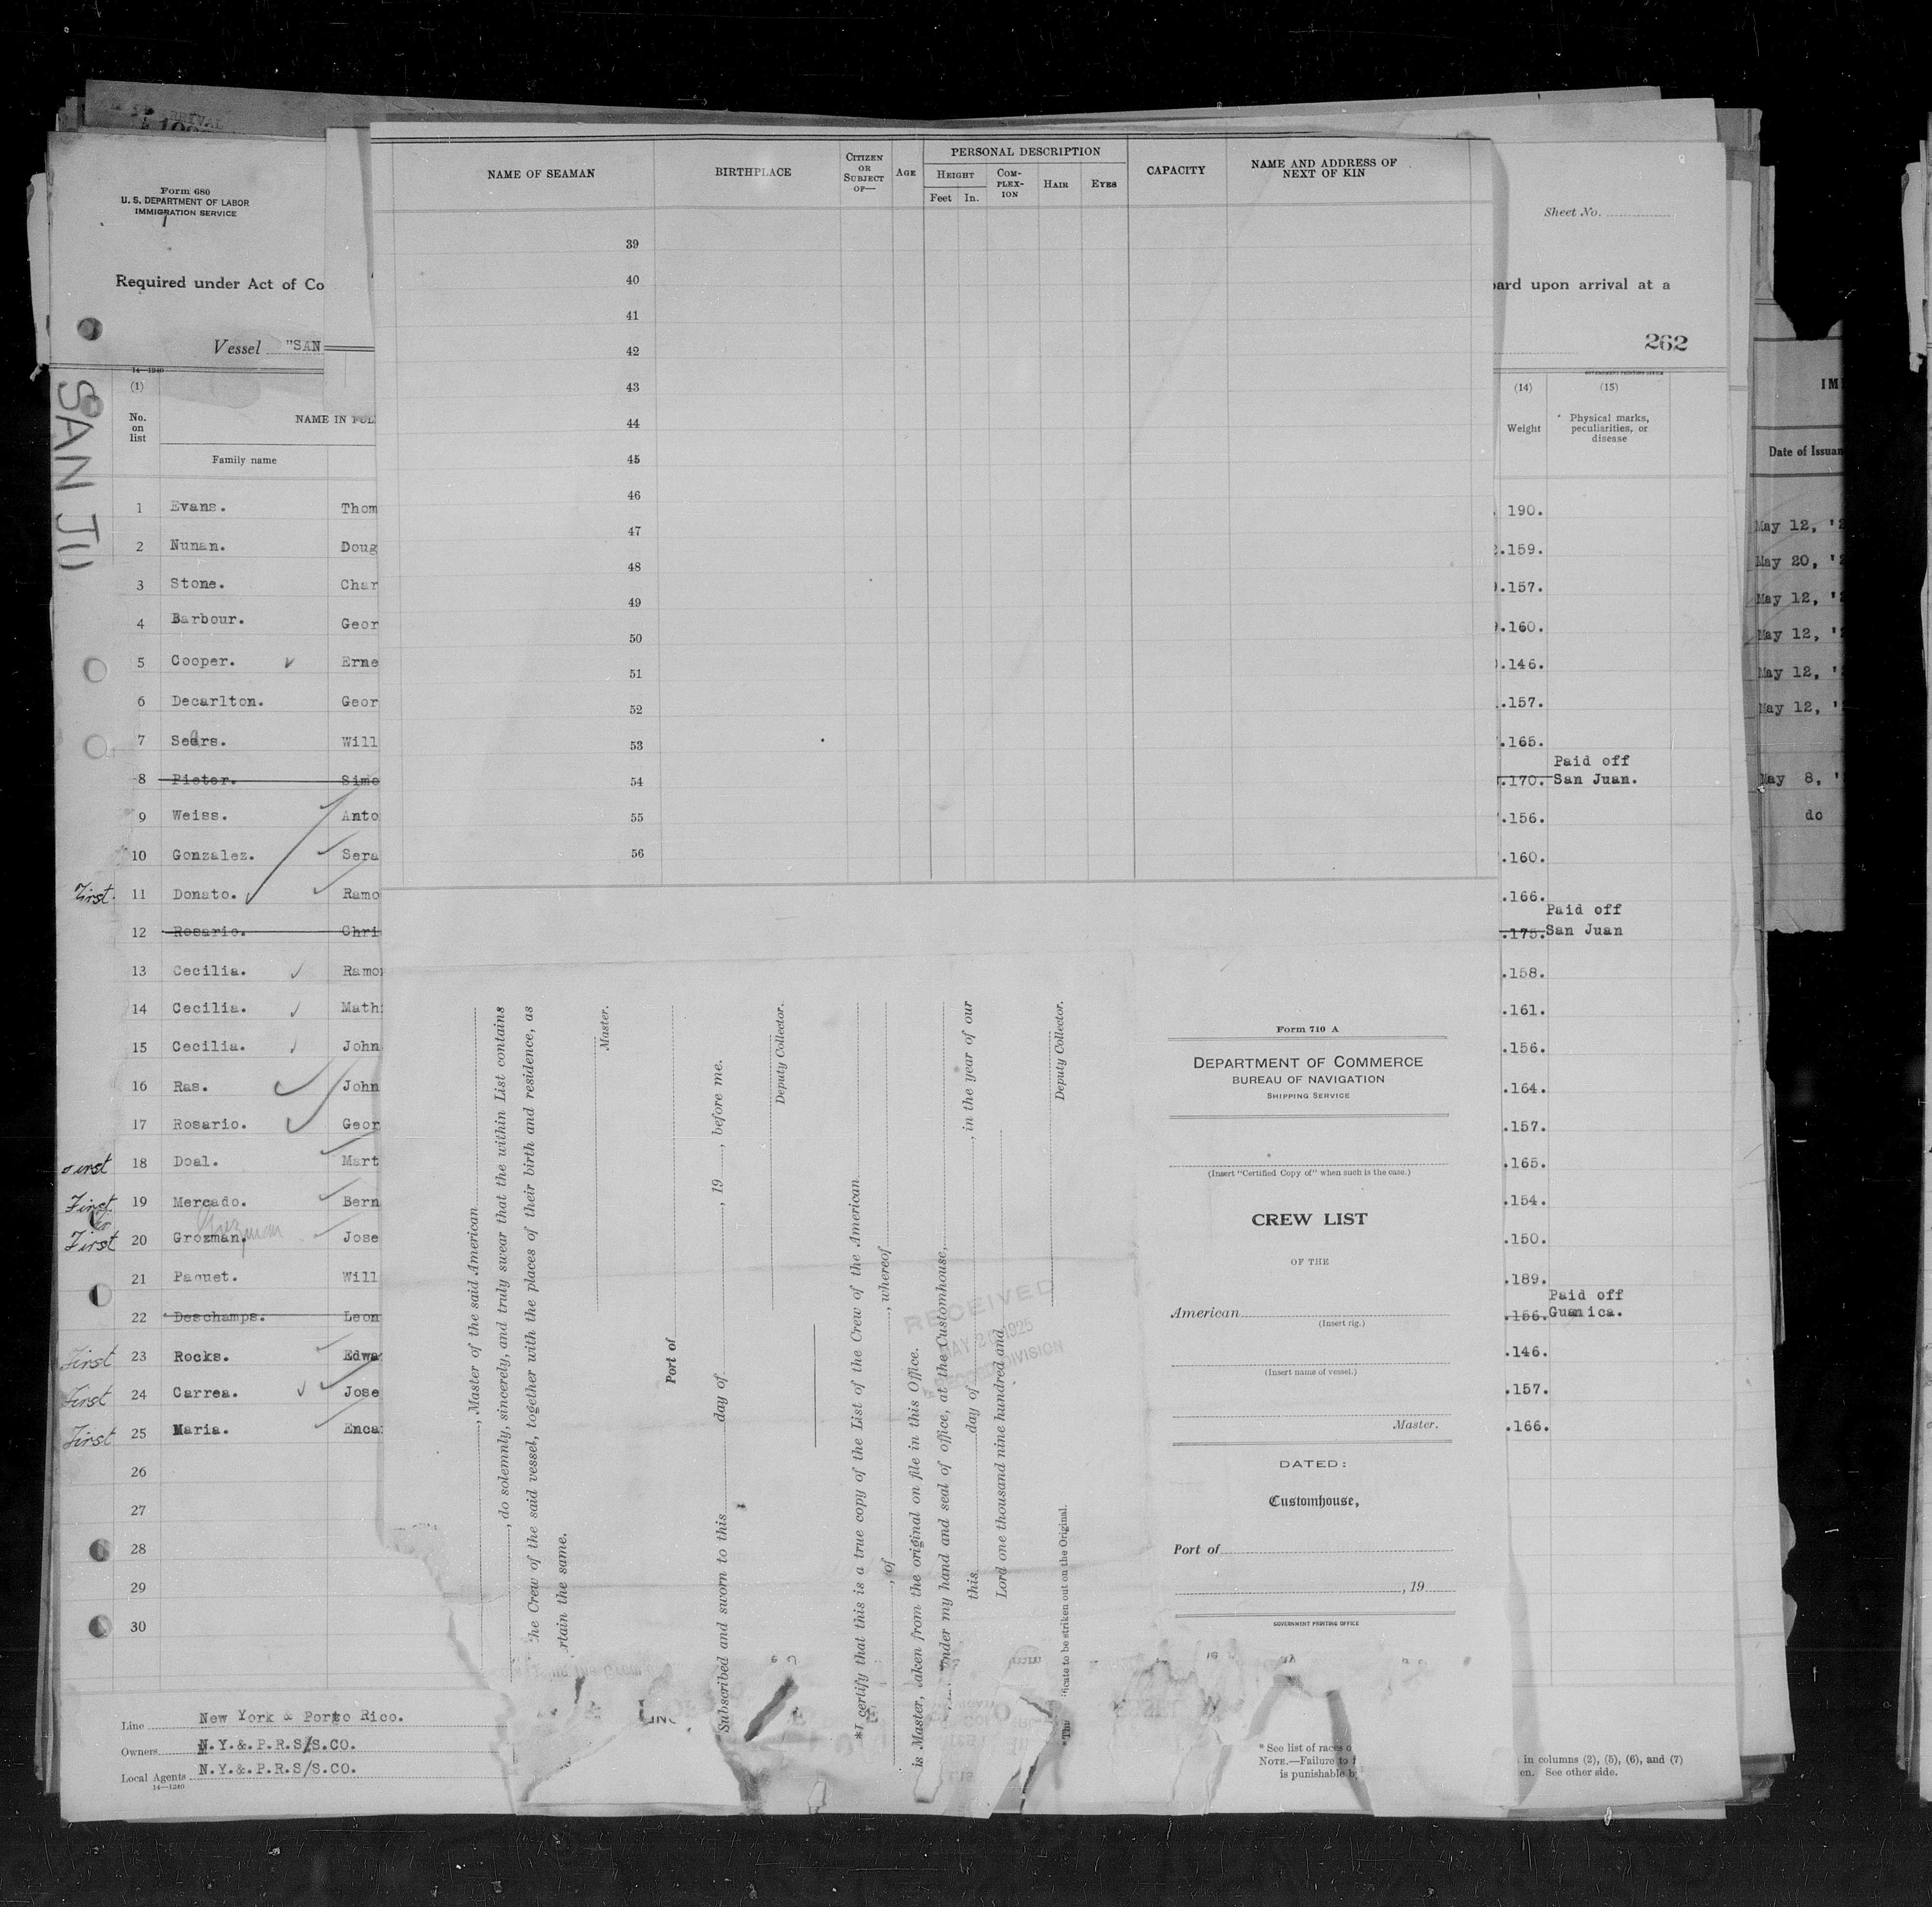 Form 680
U. S. DEPARTMENT OF LABOR
IMMIGRATION SERVICE
Required under Act of Co
Vessel "SAN
SAN JU
14—1240
(1)
No. on list
NAME IN FUL
Family name
1 Evans. Thom
2 Nunan. Doug
3 Stone. Char
4 Barbour. Geor
5 Cooper. Erne
6 Decarlton. Geor
7 Sears. Will
8 Pieter. Simo
9 Weiss. Anto
10 Gonzalez. Sera
First. 11 Donato. Ramo
12 Rosario. Chri
13 Cecilia. Ramo
14 Cecilia. Math
15 Cecilia. John
16 Ras. John
17 Rosario. Geor
18 Doal. Mart
First 19 Mercado. Bern
Guzman
First 20 Grozman, Jose
21 Paquet. Will
22 Deschamps. Leon
First 23 Rocks. Edwa
First 24 Carrea. Jose
First 25 Maria. Enca
26
27
28
29
30
Line New York & Porto Rico.
Owners N.Y.&.P.R.S/S.CO.
Local Agents N.Y.&.P.R.S/S.CO.
14—1240
NAME OF SEAMAN
BIRTHPLACE
CITIZEN OR SUBJECT OF—
AGE
PERSONAL DESCRIPTION
HEIGHT
Feet In.
COM-PLEX-ION
HAIR
EYES
CAPACITY
NAME AND ADDRESS OF NEXT OF KIN
39
40
41
42
43
44
45
46
47
48
49
50
51
52
53
54
55
56
, Master of the said American
, do solemnly, sincerely, and truly swear that the within List contains
he Crew of the said vessel, together with the places of their birth and residence, as
rtain the same.
Master.
Port of
Subscribed and sworn to this day of , 19 , before me.
Deputy Collector.
*I certify that this is a true copy of the List of the Crew of the American
, of , whereof
is Master, taken from the original on file in this Office.
under my hand and seal of office, at the Customhouse,
this day of , in the year of our
Lord one thousand nine hundred and
Deputy Collector.
ificate to be striken out on the Original.
RECEIVED
MAY 2 1925
RECORD DIVISION
Form 710 A
DEPARTMENT OF COMMERCE
BUREAU OF NAVIGATION
SHIPPING SERVICE
(Insert "Certified Copy of" when such is the case.)
CREW LIST
OF THE
American
(Insert rig.)
(Insert name of vessel.)
Master.
DATED:
Customhouse,
Port of
, 19
GOVERNMENT PRINTING OFFICE
* See list of races o
NOTE.—Failure to f
is punishable b
Sheet No.
oard upon arrival at a
262
GOVERNMENT PRINTING OFFICE
(14) (15)
Weight
Physical marks, peculiarities, or disease
190.
.159.
.157.
.160.
.146.
.157.
.165.
Paid off
.170. San Juan.
.156.
.160.
.166.
Paid off
.175. San Juan
.158.
.161.
.156.
.164.
.157.
.165.
.154.
.150.
.189.
Paid off
.156. Guanica.
.146.
.157.
.166.
in columns (2), (5), (6), and (7)
en. See other side.
IM
Date of Issuan
May 12, '2
May 20, '2
May 12, '2
May 12, '2
May 12, '
May 12, '
May 8, '
do